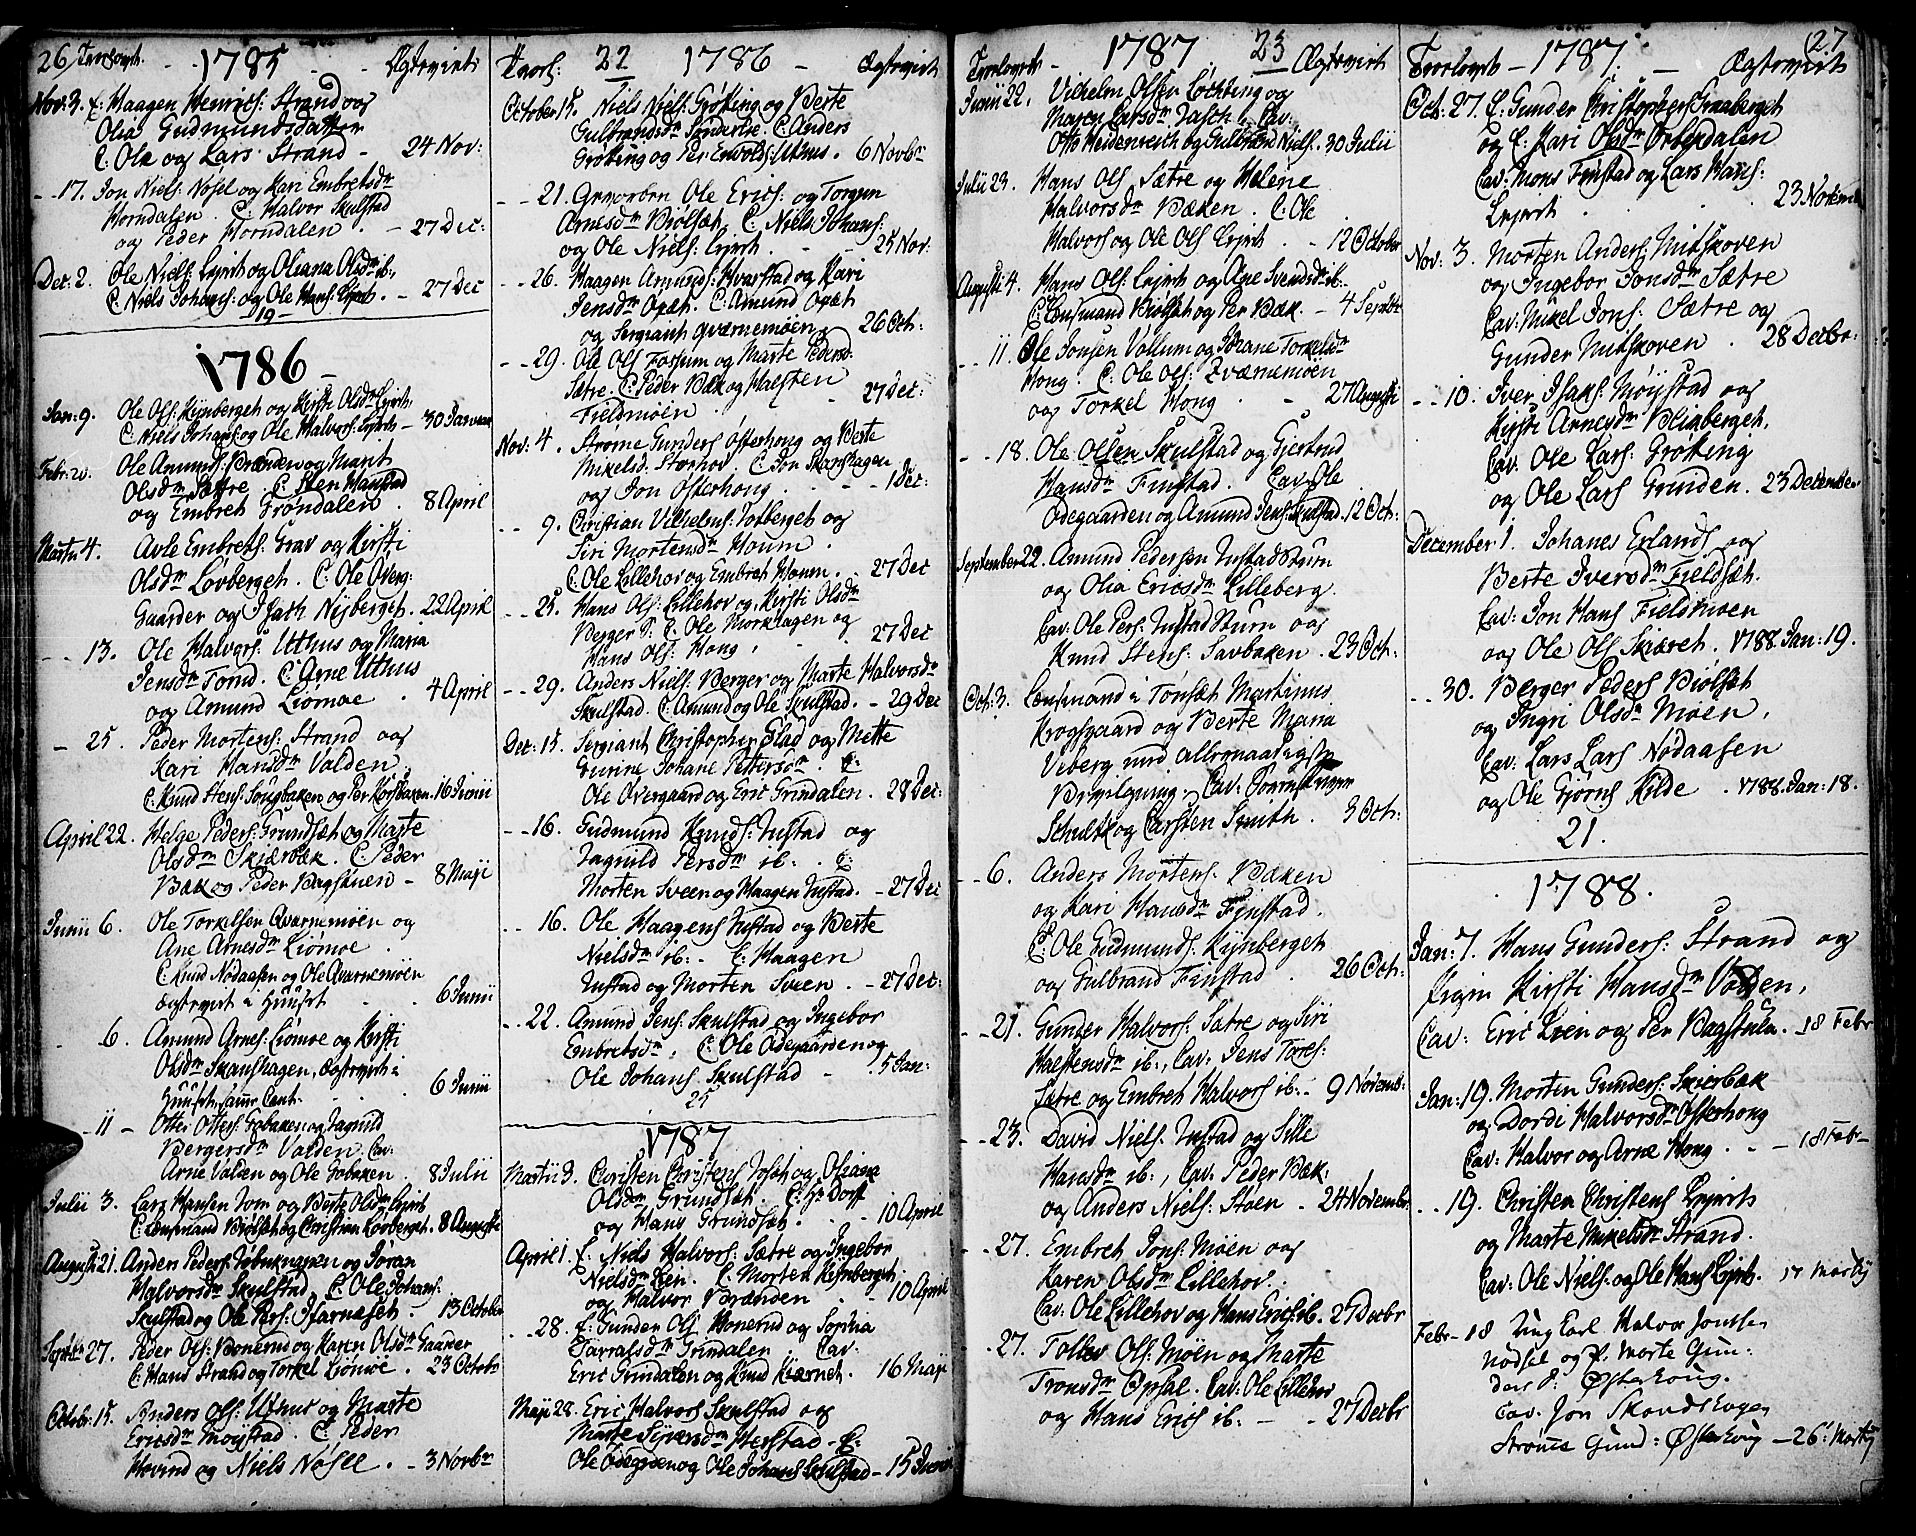 26 Trolovede. - - 1785 - - Ægteviet
Nov: 3. E: Haagen Henrics: Strand og
Olia Gudmundsdatter
C: Ole og Lars Strand - 24 Nov:
- - 17. Jon Niels: Nøsel og Kari Embretsdr
Horndalen. C: Halvor Skulstad
og Peder Horndalen. - 27 Dec:
Dec: 2. Ole Niels: og Oliana Olsdr ib:
C. Niels Johans: og Ole Hans: - 27 Dec
- 19 -
1786 -
Jan: 9. Ole Ols: Kynberget og Kirsti Olsdr
C. Niels Johans: og Ole Halvors: - 30 Januar
Febr: 20. Ole Amunds: Brænden og Marit
Olsdr Sættre. C: Sten Haustad
og Embret Frøndalen. 8 April
Martii 4. Avle Embrets: Grav og Kirsti
Olsdr Løvberget. C: Ole Øver-
Gaarder og Isach Nisberget. 22 April
- - 13. Ole Halvors: Uthus og Maria
Jensdr Tomd. C: Arne Uthus
og Amund Liømoe. 4 April
- 25. Peder Mortens: Strand og
Kari Hansdr Valden.
C: Knud Stens: og Per Korsbaken. 16 Junii
April 22. Helge Peders: Grundsæt og Marte
Olsdr Skiærbæk. C: Peder
Bæk og Peder Bagstuen - 8 Maji
Junii 6. Ole Torkelsen Qværnemoen og
Ane Arnesdr Liømoe.
C: Knud Nødaasen og Ole Qværnemoen
Ægteviet i Huuset - 6 Junii
- 6. Amund Arnes: Liømoe og Kirsti
Olsdr Skanshagen, Ægteviet i
Huuset, samme Caut: 6 Junii
- 11 - Otter Otters: Gobaken og Jagnild
Bergersdr Valden. Cav:
Arne Valden og Ole Gobaken. 8 Julii
Julii 3. Lars Hansen Tom og Berte Olsdr
C: Lensmand Biølset og Christian Løvberget. 8 Augusti
Augusti 21. Anders Peders: og Joran
Halvorsdr Skulstad. C: Ole Johans:
Skulstad og Ole Pers: - 13 October
Septbr 27. Peder Ols: Bonerud og Karen Olsdr Gaarder
C: Hans Strand og Torkel Liømoe. 23 Octobr
Octobr: 15. Anders Ols: Uthus og Marte
Ericsdr Moystad. C: Peder
Hovind og Niels Nøsel. - 3 Novbr
Trol: 22 1786 - Ægteviet
October 15. Niels Niels: Grøtting og Berte
Gulbrandsdr C: Anders
Grøtting og Per Uthus. 6 Novbr
- - 21. Ole Erics: og Torgun
Arnesdr Biølset. C: Niels Johans:
og Ole Niels: - 25 Nov:
- - 26. Haagen Amunds: Kvarstad og Kari
Jensdr Opæt. C: Amund Opæt
og Sergiant Qværnemoen. 26 Oct:
- - 29. Ole Ols: Fossum og Marte Pedersdr
Sætre. C: Peder Bæk og Halsten
Fieldmoen. - 27 Dec:
Nov: 4. Strøme Gunders Østerhong og Berte
Mikelsd: Storhov. C: Jon Skanshagen
og Jon Østerhong. - 1 Dec:
- - 9. Christian Vilhelms: og
Siri Mortensdr Houm.
C: Ole Lillehov og Embret Houm. - 27 Dec
- - 25. Hans Ols: Lillehov og Kirsti Olsdr
Berger S: C: Ole Morktagen og
Hans Ols: Hong, - 27 Dec
- - 29. Anders Niels: Berger og Marte Halvorsdr
Skulstad. C: Amund og Ole Skulstad. - 29 Dec
Dec: 15. Sergiant Christopher Stad og Mette
Gurine Johane Pettersdr. C:
Ole Øvergaard og Eric Grindalen. 28 Dec:
- - 16. Gudmund Knuds: Justad og
Jagnild Persdr ib: C:
Morten Sveen og Haagen Justad. - 27 Dec
- - 16. Ole Haagens Justad og Berte
Nielsdr ib: - C: Haagen
Justad og Morten Sveen. - 27 Dec:
- - 22. Amund Jens: Skulstad og Ingebor
Embretsdr, C: Ole Ødegaarden og
Ole Johans: Skulstad - 5 Jan:
25
1787
Martii 3. Christen Christens og Oliana
Olsdr Grundset. C: Hr Dorf
og Hans Grundset. - 10 April
April 1. E. Niels Halvors: Sætre og Ingebor
Nielsdr C: Morten Kynberget
og Halvor Brænden - 10 April
- - 28. E. Gunder Ols Honerud og Sophia
Tarralsdr Grindalen Cav:
Eric Grindalen og Knud Kiærnet. 16 Maji
Maji 28. Eric Halvors Skulstad og
Marte Syversdr Herstad. C:
Ole Ødegården og Ole Johans Skulstad - 15 Junii
Trolovede - 1787 23 Ægteviet
Junii 22. Vilhelm Olsen Løchting og
Maren Larsdr Cav:
Otto Heidenreich og Gulbrand Niels. 30 Julii
Julii 23. Hans Ols Sætre og Helene
Halvorsdr Bæken. C: Ole
Halvors og Ole Ols - 12 October
Augusti 4. Hans Ols: og Ane Svendsdr ib:
C: Lensmand Biølset og Per Bæk. - 4 Septbr
- - 11. Ole Jonsen Vollum og Johane Torkelsdr
Hong. C: Ole Ols: Qværnemoen
og Torkel Hong - 27 Augusti
- - 18. Ole Olsen Skulstad og Gjertrud
Hansdr Finstad. Cav: Ole
Ødegaarden og Amund Jens: Skulstad. 12 Oct:
September 22. Amund Pedersen Justad Sturn
og Olia Ericsdr Lilleberg.
Cav: Ole Pers: Justad Sturn og
Knud Stens: Savbaken. 23 Oct:
Oct: 3. Lensmand i Tønsæt Martinus
Krogsgaard og Berte Maria
Viberg med allernaadigste
Bevilgning. Cav:
Schultz og Carsten Smith. 3 Oct:
- - 6. Anders Mortens: Bæken
og Kari Hansdr Finstad.
C: Ole Gudmunds: Kynberget
og Gulbrand Finstad. 26 Oct:
- - 21. Gunder Halvors: Sætre og Siri
Halstensdr ib:, Cav: Jens Tores:
Sætre og Embret Halvors ib: - 9 Novemb:
- - 23. David Niels: Justad og Sille
Hansdr ib:, Cav: Peder Bæk
og Anders Niels: Stoen - 24 November
- - 27. Embret Jons: Moen og
Karen Olsdr Lillehov.
Cav: Ole Lillehov og Hans Erics ib. 27 Decbr
- 27. Tollev Ols: Moen og Marte
Tronsdr Opsal. Cav: Ole Lillehov
og Hans Erics ib: - - 27 Decbr
Trolovede - 1787. - Ægteviet 27
Oct: 27. E. Gunder Christopher: Graaberget
og E: Kari Olsdr Ørbekdalen
Cav: Mons Finstad og Lars Hans:
23 Novemb
Nov: 3. Morten Anders: Mitskoven
og Ingebor Jonsdr Sætre
Cav: Mikel Jons: Sætre og
Gunder Mitskoven. 28 Decbr:
- - 10. Iver Isaks: Moystad og
Kirsti Arnesdr Bligberget.
Cav: Ole Lars: Grøtting
og Ole Lars Grunden. 23 December
December 1. Johanes Erlands og
Berte Iversdr Fieldset.
Cav: Jon Hans Fieldmoen
og Ole Ols Skiæret. 1788 Jan: 19.
- - 30. Berger Peders Biølset
og Ingri Olsdr Moen.
Cav: Lars Lars Nødaasen
og Ole Gjørns Kilde. 1788. Jan: 18.
21.
1788.
Jan: 7. Hans Gunders: Strand og
Pigen Kirsti Hansdr Valden,
Cav: Eric Lien og Per Bagstuen. - 18 Febr
Jan: 19. Morten Gunders: Skierbæk
og Dordi Halvorsdr Østerhong
Cav: Halvor og Arne Hong. - - 18 Febr -
- - 19. Christen Christens
og Marte Mikelsdr Strand.
Cav: Ole Niels: og Ole Hans 17 Martij
Febr - 18 Ung Carl Halvor Jonsen
Nødsel og P. Marte Gun-
ders D: Østerhoug.
Cav: Jon Skandshagen
Strømer Gund: Østerhoug - 26. Martij